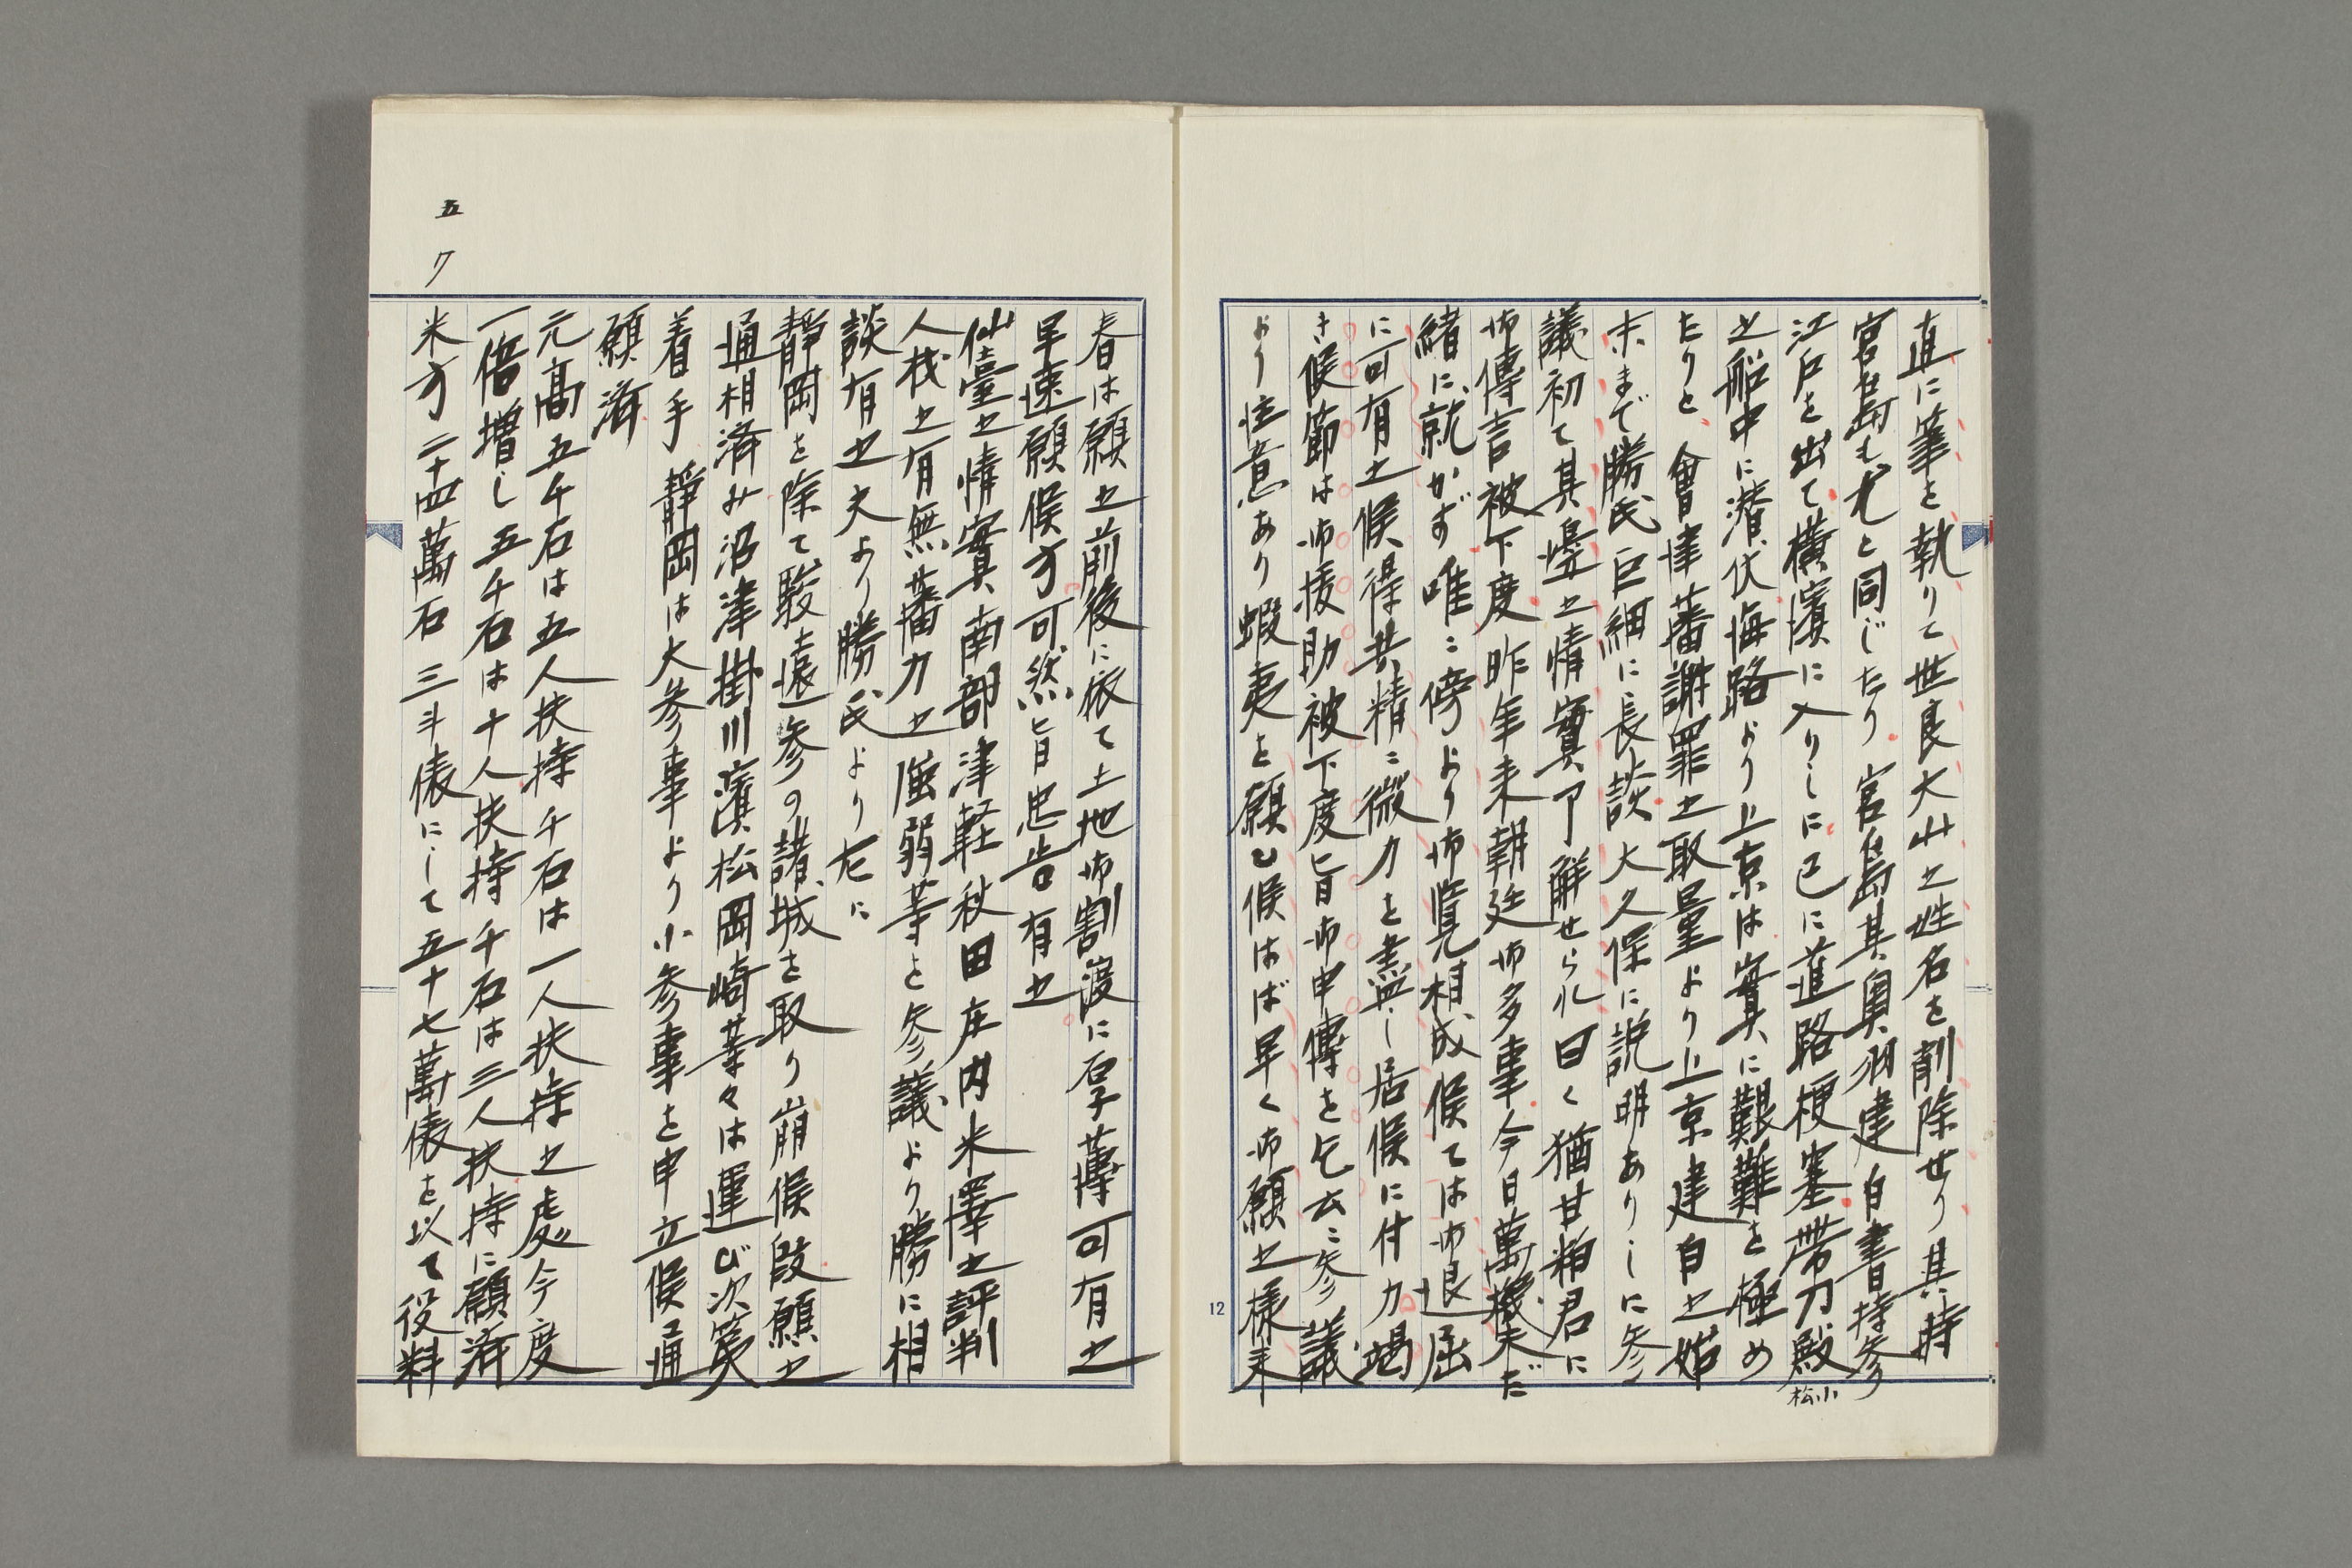 直に筆を執りて世良大山之姓名を削除せり其時
宮島も尤と同じたり宮島其奥羽建白書持参
江戸を出て横濱に入りしに已に進路梗塞帯刀殿
小松
之船中に潜伏海路より上京は實に艱難を極め
たりと會津藩謝罪之取量より上京建白之始
末まで勝氏巨細に長談大久保に説明ありしに参
議初て其邊之情實了解せられ曰く猶甘粕君に
御傳言被下度昨年来朝廷御多事今日萬機未だ
緒に就かず唯〻傍より御覧相成候ては御退屈
に可有之候得共精〻微力を盡し居候に付力竭
き候節は御援助被下度旨御申傳を乞云〻参議
より注意あり蝦夷を願ひ候はば早く御願之様来
12
春は願之前後に依て土地御割渡に厚薄可有之
早速願候方可然旨忠告有之
仙臺之情實南部津軽秋田庄内米澤之評判
人材之有無藩力之强弱等を参議より勝に相
談有之夫より勝氏より左に
静岡を除て駿遠参の諸城を取り崩候段願之
通相済み沼津掛川濱松岡崎等々は運び次第
着手静岡は大参事より小参事を申立候通
願済
元高五千石は五人扶持千石は一人扶持之處今度
一倍増し五千石は十人扶持千石は三人扶持に願済
米方二十四萬石三斗俵にして五十七萬俵を以て役料
五ワ